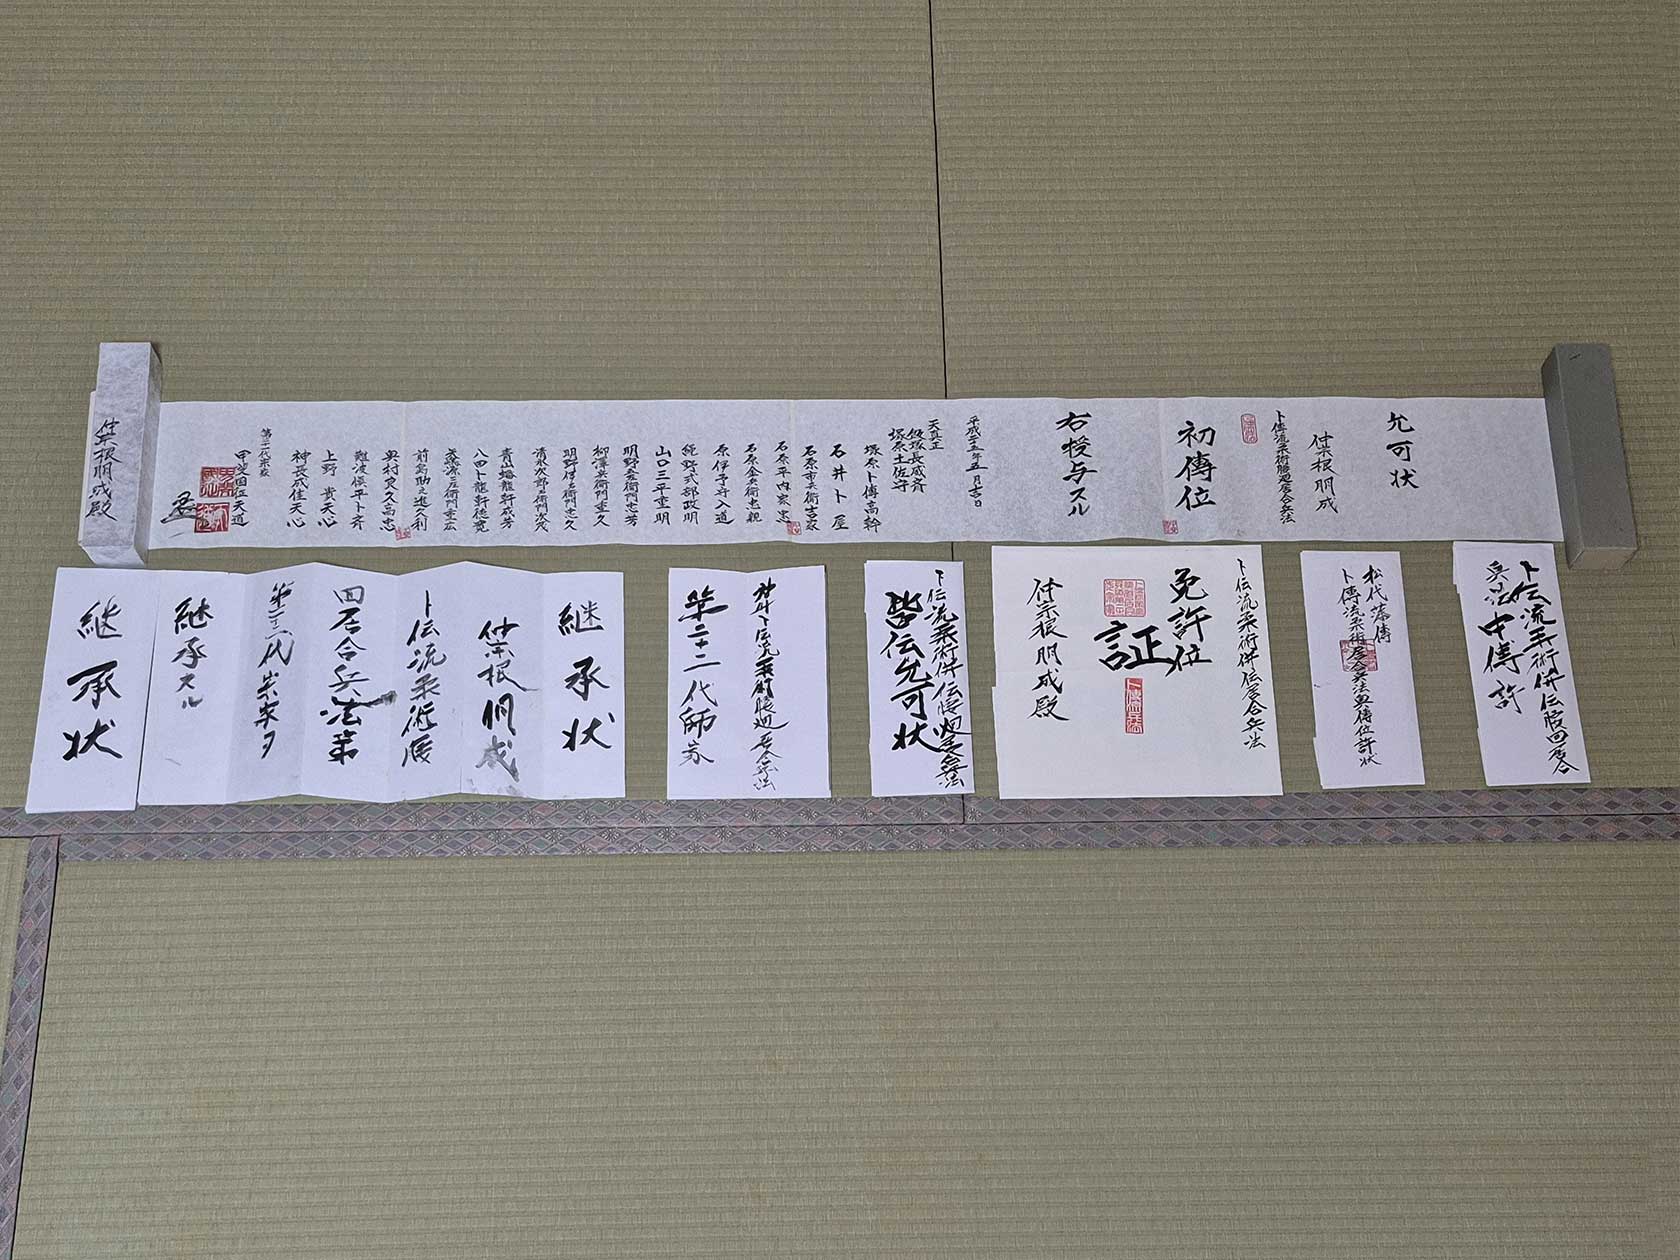 允可状
仲宗根朋成
卜傳流柔術腰廻居合兵法
初傳位
右授与スル
平成二十五年五月吉日
天真正
飯塚長威斉
塚原土佐守
塚原卜傳高幹
石井卜屋
石原市兵衛吉家
石原平内家忠
石原金兵衛忠親
原伊予守入道
紀野式部政明
山口三平重明
明野金左衛門忠芳
柳澤兵衛門重久
明野伊右衛門忠久
清水次郎左衛門次茂
青山蟠龍軒成芳
八田卜龍軒徳寛
前島助之進久利
奥村庚久高忠
難波保平卜斉
上野貴天心
神長成佳天心
第二十一代宗家
甲斐国位天道
仲宗根朋成殿
卜伝流柔術併伝腰回居合
兵法中傳許
松代藩傳
卜傳流柔術居合兵法奥傳位許状
卜伝流柔術併伝居合兵法
免許位
証
仲宗根朋成殿
卜伝流柔術併伝腰廻居合兵法
皆伝允可状
卜伝流柔術腰廻居合兵法
第二十二代師家
継承状
仲宗根朋成
卜伝流柔術腰
回居合兵法第
第二十二代宗家ヲ
継承スル
継承状